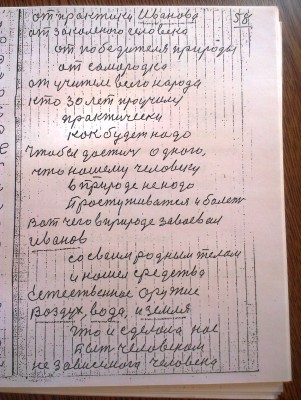 от практики Иванова
58
от закалёного человека
от победителя природы
от самородка
от учителя всего народа
кто 30 лет проучился
практически
как будет надо
чтобы достич одного,
что нашему человеку
в природе не надо
простуживатся и болеть
Вот чего в природе завоевал
Иванов
со своим родным телом
и нашел средства
Естественное оружие
Воздух, вода, и земля
что и сделала нас
быть человеком
не зависимого человека